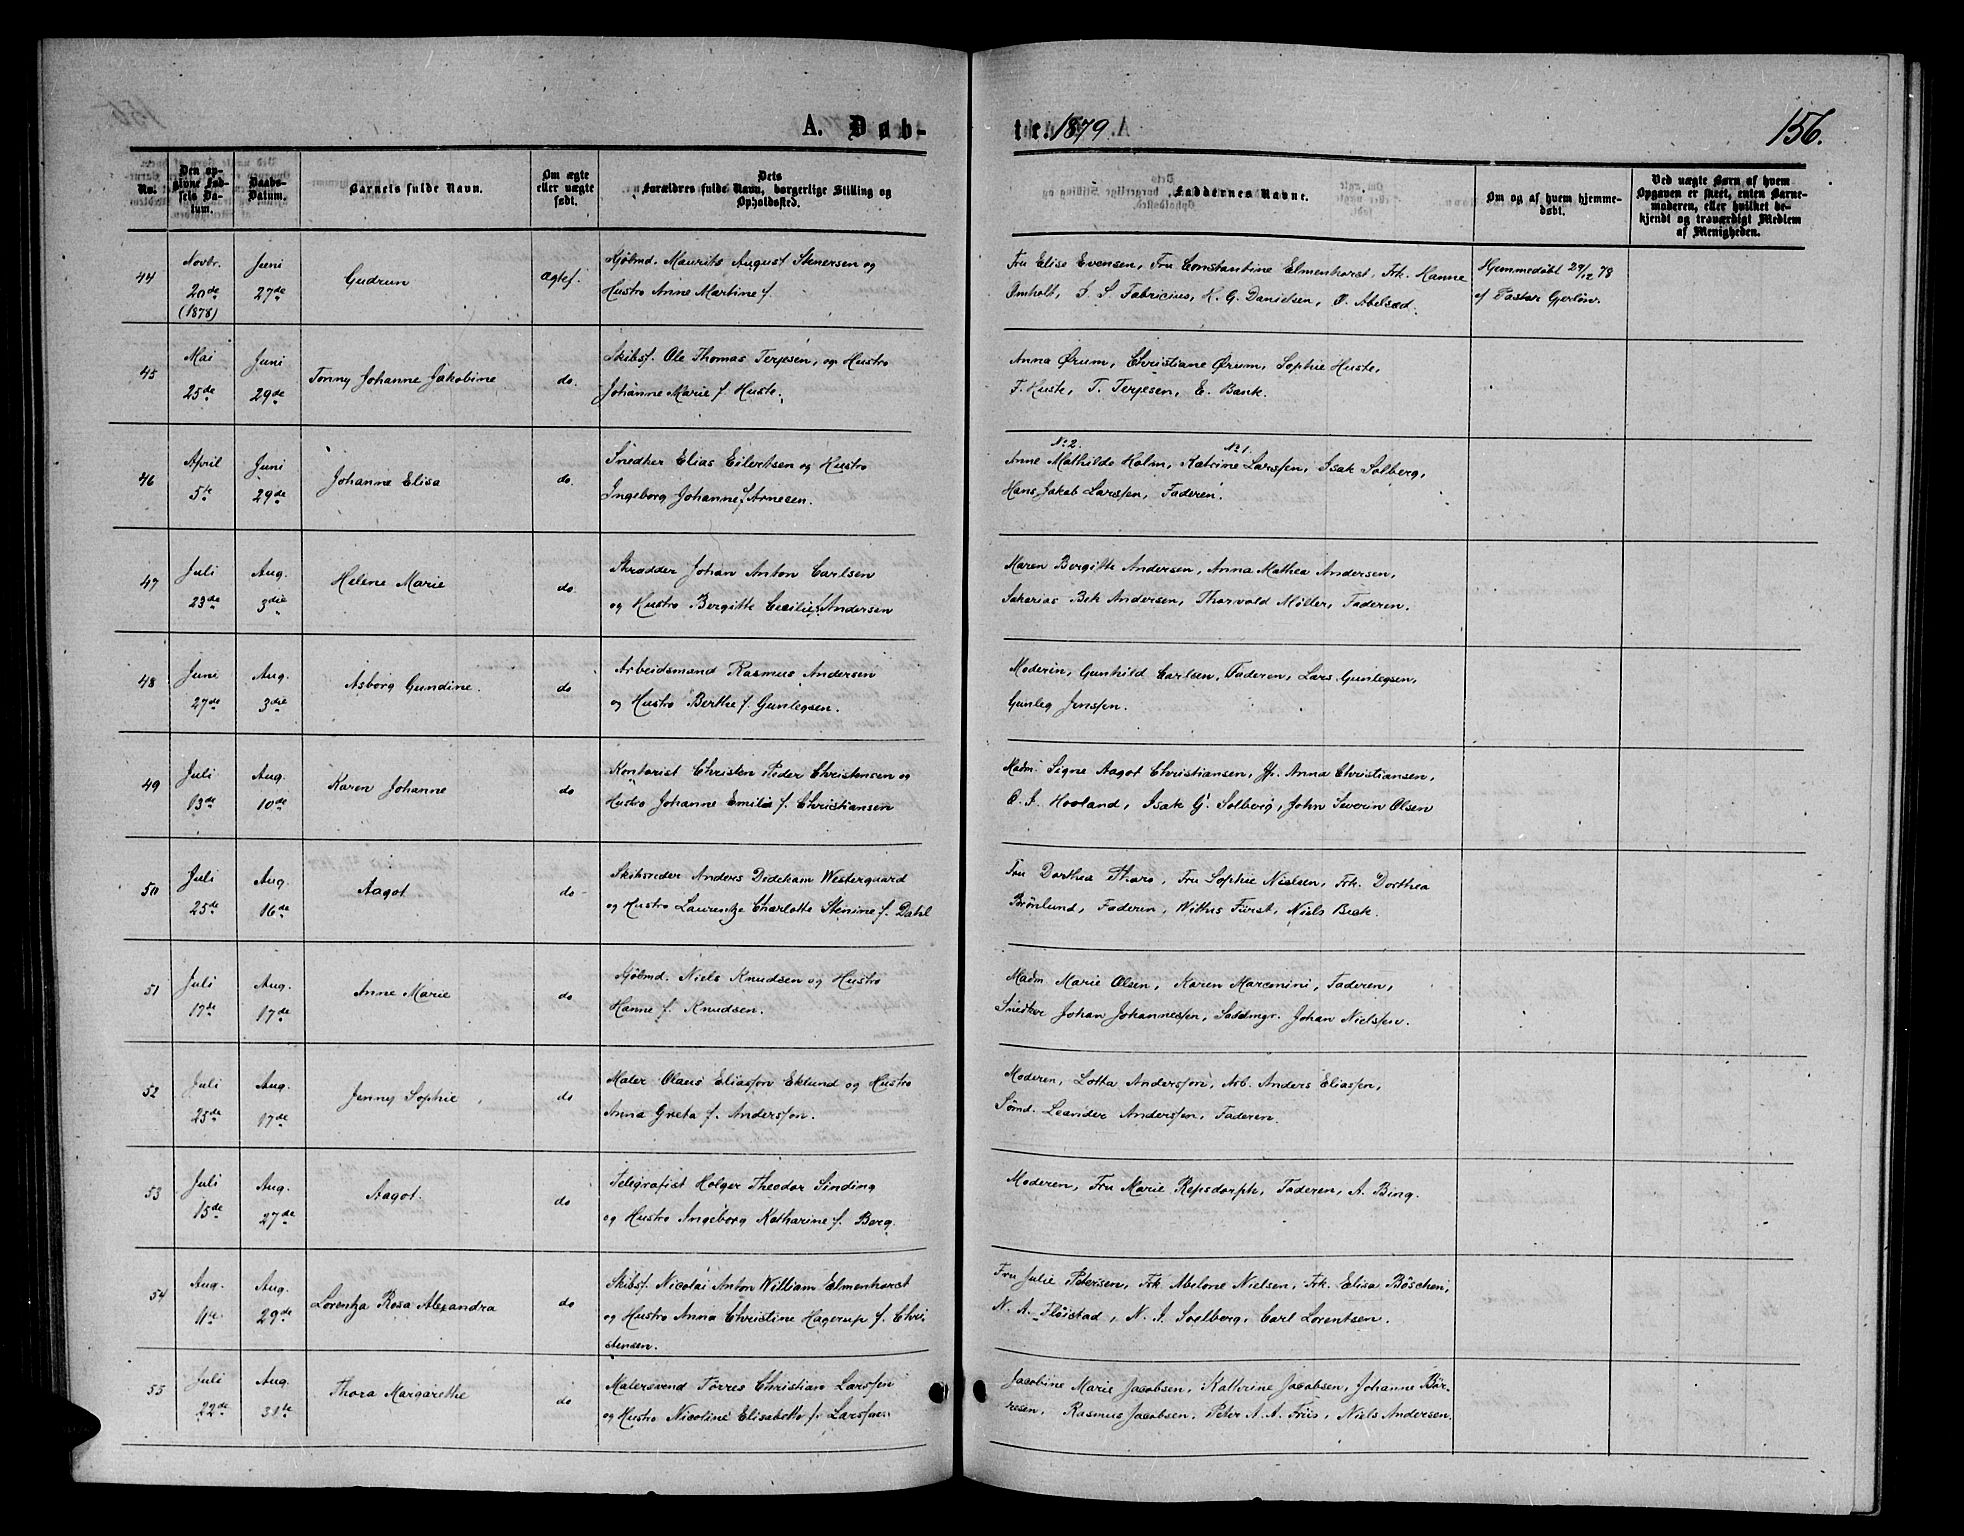 A. Døb-
te. 1879
156.
No.
Den opgivne Fødsels Datum.
Daabs-Datum.
Barnets fulde Navn.
Om ægte eller uægte født.
Dets Forældres fulde Navn, borgerlige Stilling og Opholdssted.
Faddernes Navne.
Om og af hvem hjemmedøbt.
Ved uægte Børn af hvem Opgaven er skeet, enten Barnemoderen, eller hvilket bekjendt og troværdigt Medlem af Menigheden.
44 Novbr. 20de (1878) Juni 27de Gudrun Ægtef.
Kjøbmd. Maurits August Stenersen og
Hustro Anne Martine f.
Fru Elise Evensen, Fru Constantine Elmenhorst, Frk. Hanne
Omholt, J. S. Fabricius, H. G. Danielsen, O. Abelsæd.
Hjemmedøbt 29/12 78
af Pastor Gjerløw.
45 Mai 25de Juni 29de Tonny Johanne Jakobine do.
Skibsf. Ole Thomas Terjesen, og Hustro
Johanne Marie f. Huste.
Anna Ørum, Christiane Ørum, Sophie Huste,
F. Huste, T. Terjesen, E. Bank.
46 April 5te Juni 29de Johanne Elisa do.
Snedker Elias Eilertsen og Hustro
Ingeborg Johanne f. Arnesen.
No 2. No 1.
Anne Mathilde Holm, Katrine Larssen, Isak Solberg,
Hans Jakob Larssen, Faderen.
47 Juli 23de Aug. 3die Helene Marie do.
Skrædder Johan Anton Carlsen
og Hustro Bergitte Cecilie f. Andersen
Maren Bergitte Andersen, Anna Mathea Andersen,
Sakarias Bek Andersen, Thorvald Møller, Faderen.
48 Juni 27de Aug. 3die Asborg Gundine. do
Arbeidsmand Rasmus Andersen
og Hustro Berthe f. Gunlegsen.
Moderen, Gunhild Carlsen, Faderen, Lars Gunlegsen,
Gunleg Jenssen.
49 Juli 13de Aug. 10de Karen Johanne do
Kontorist Christen Peder Christensen og
Hustro Johanne Emilie f. Christiansen
Madm. Signe Aagot Christiansen, Jf. Anna Christiansen,
O. J. Hooland, Isak G. Solberg, John Severin Olsen
50 Juli 25de Aug. 16de Aagot do
Skibsreder Anders Dedekam Westergaard
og Hustro Laurentze Charlotte Stenine f. Dahl
Fru Dorthea Thoro, Fru Sophie Nielsen, Frk. Dorthea
Brönlund, Faderen, Withus Fürst, Niels Bek.
51 Juli 17de Aug. 17de Anne Marie do
Kjøbmd. Niels Knudsen og Hustro
Hanne f. Knudsen.
Madm Marie Olsen, Karen Marconini, Faderen,
Snedker Johan Johannessen, Saddmgr. Johan Nielssen.
52 Juli 25de Aug. 17de Jenny Sophie do
Maler Olaus Eliasson Eklund og Hustro
Anna Greta f. Andersson.
Moderen, Lotta Andersson, Arb. Anders Eliassen,
Sömd. Leander Anderssen, Faderen.
53 Juli 15de Aug. 27de Aagot. do
Telegrafist Holger Theodor Sinding
og Hustro Ingeborg Katharine f. Berg.
Moderen, Fru Marie Repsdorph, Faderen, A. Bing.
54 Aug. 11te Aug. 29de Lorentza Rosa Alexandra do
Skibsf. Nicolai Anton William Elmenhorst
og Hustro Anna Christine Hagerup f. Chri-
stensen.
Fru Julie Petersen, Frk Abelone Nielsen, Frk. Elisa Böschen,
N. A. Flöistad, N. J. Soelberg, Carl Lorentsen.
55 Juli 22de Aug. 31te Thora Margarethe do
Malersvend Törres Christian Larssen
og Hustro Nicoline Elisabeth f. Larssen.
Jacobine Marie Jacobsen, Kathrine Jacobsen, Johanne Bör-
resen, Rasmus Jacobsen, Peter A. A. Friis, Niels Andersen.